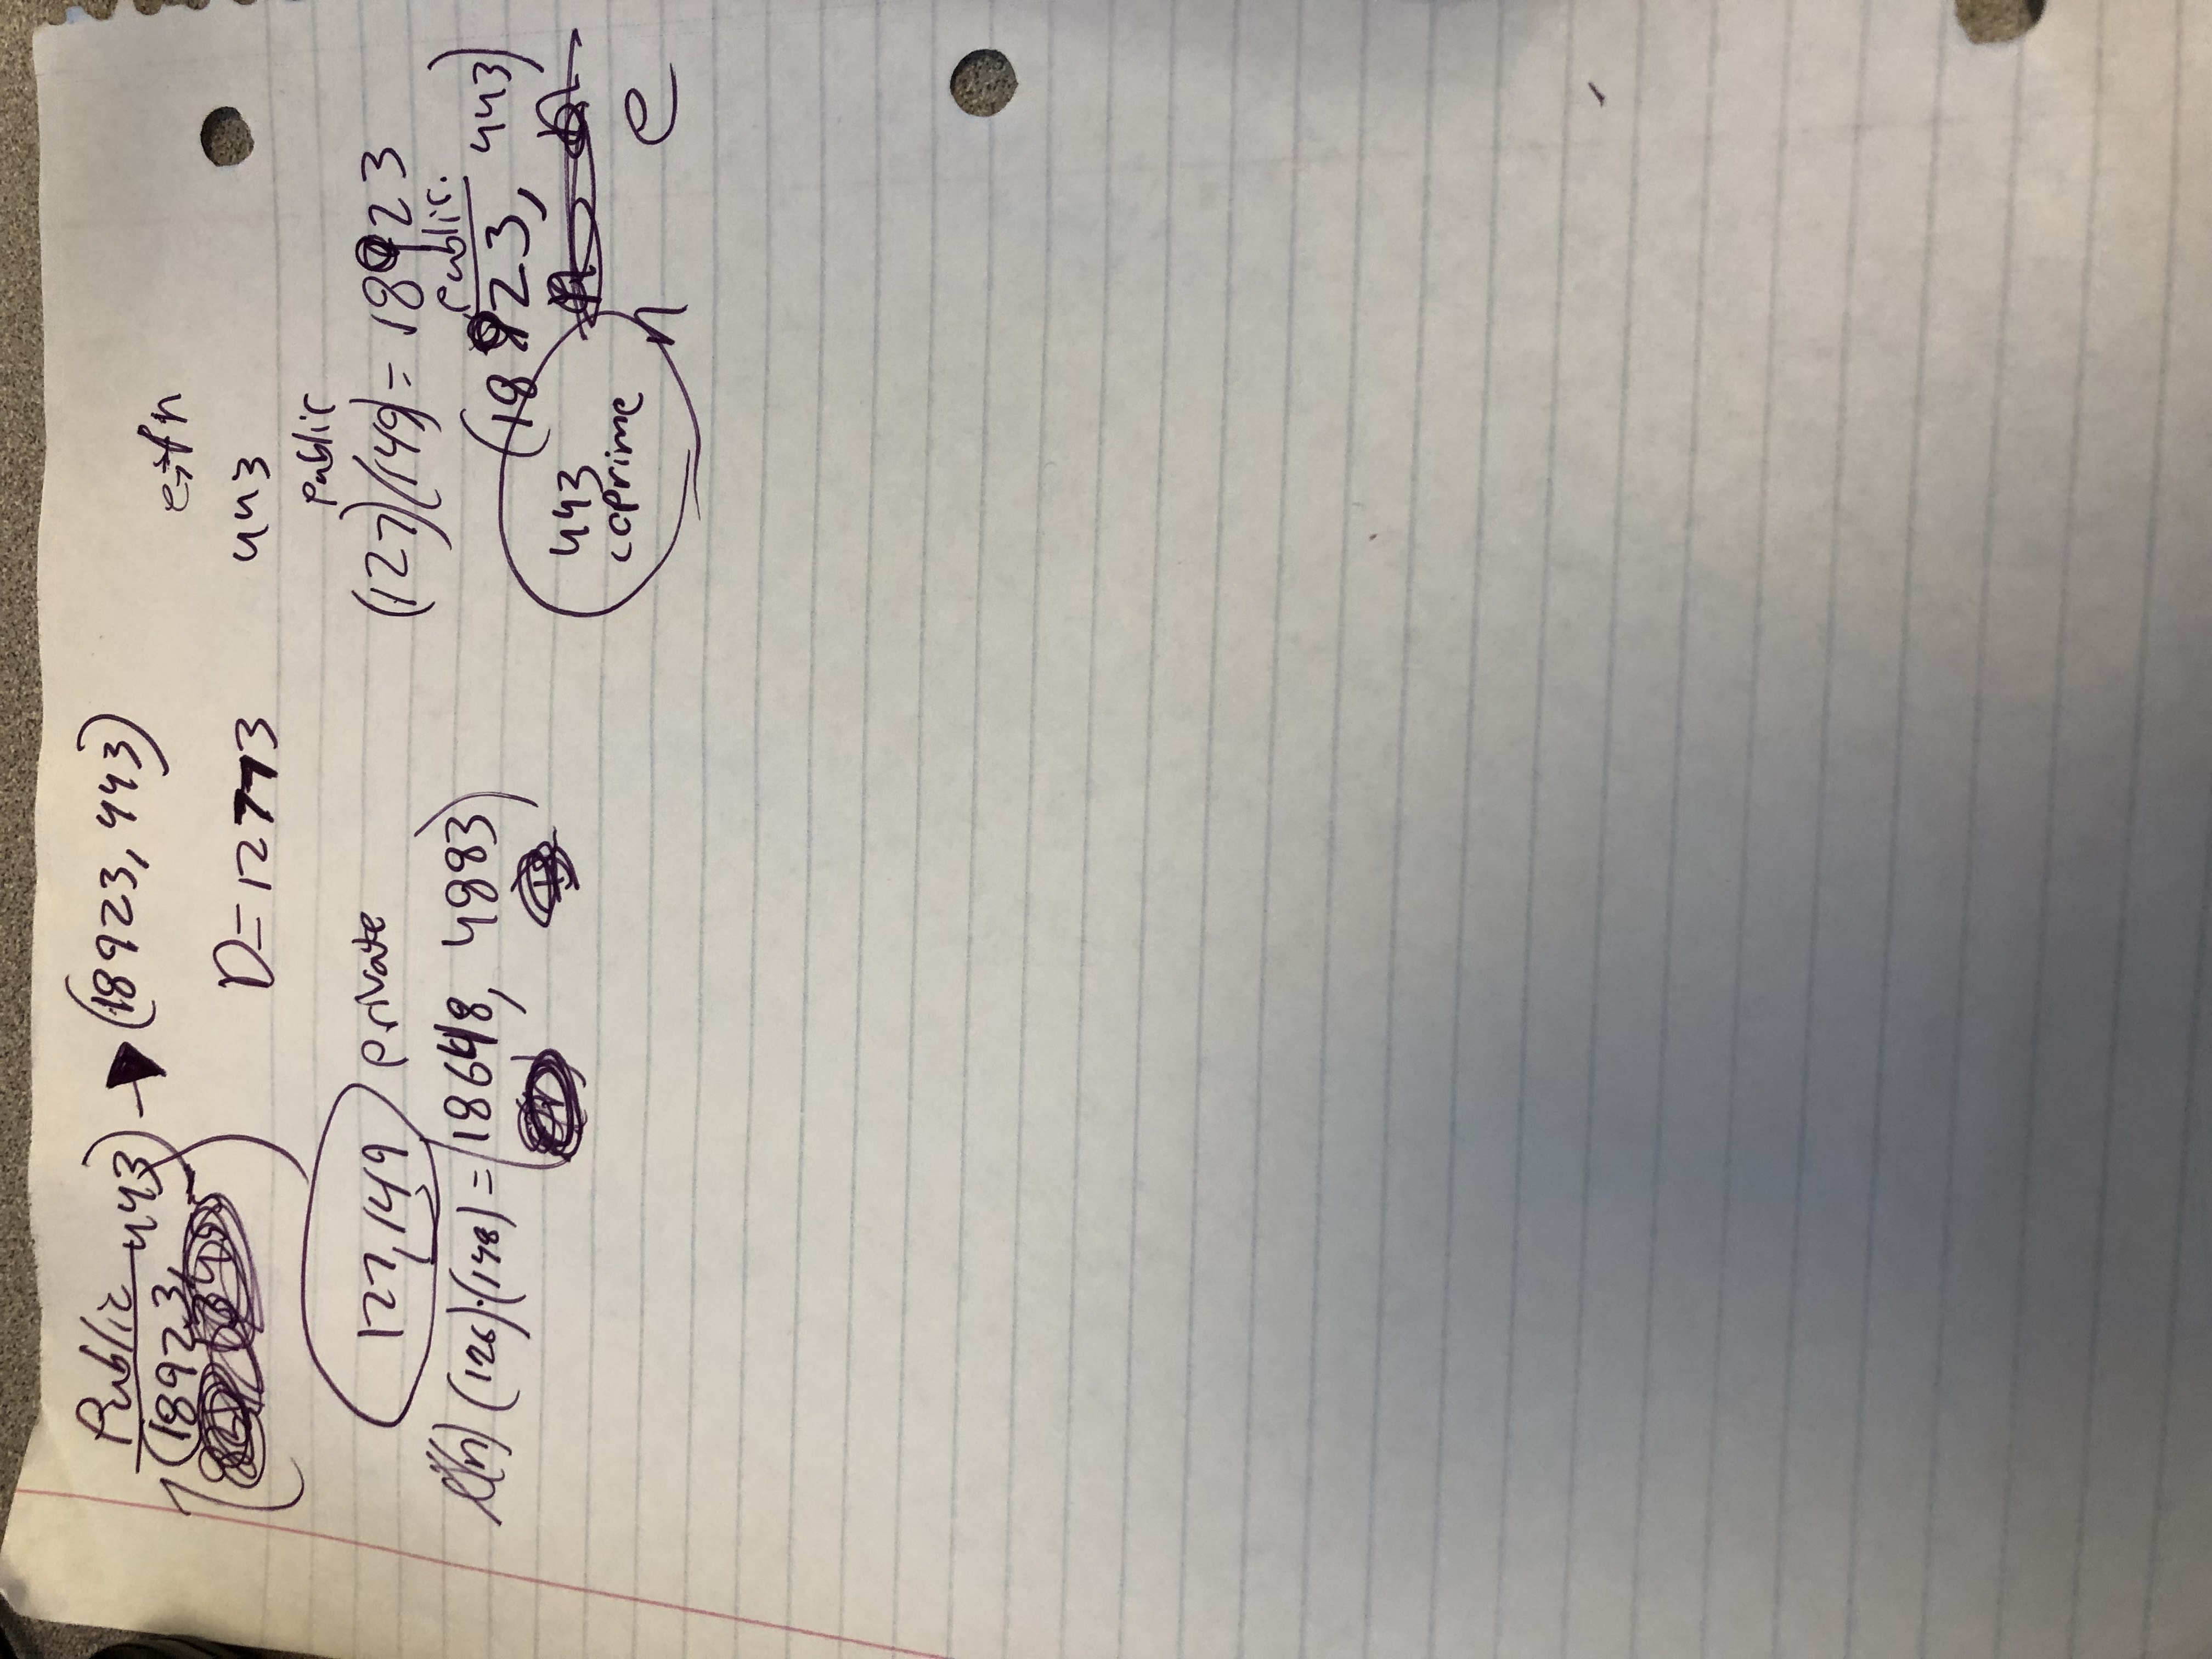 Public
(18923, 443) → (18923, 443)
D=12773
127,149 private
(126)·(148) = (18648, 4883)
443
public
(127)(149)= 18923
public.
(18923, 443)
443
coprime
n e